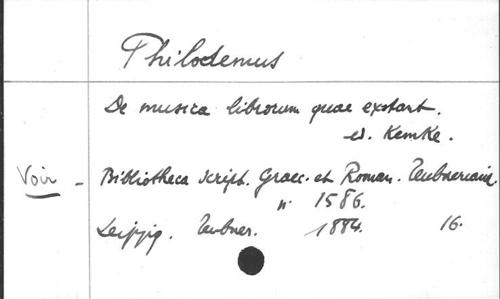 Philodemus
De musica librorum quae exstant.
ed. Kemke.
Voir - Bibliotheca script. Graec. et Roman. Teubneriana.
n. 1586.
Leipzig. Teubner. 1884. 16.